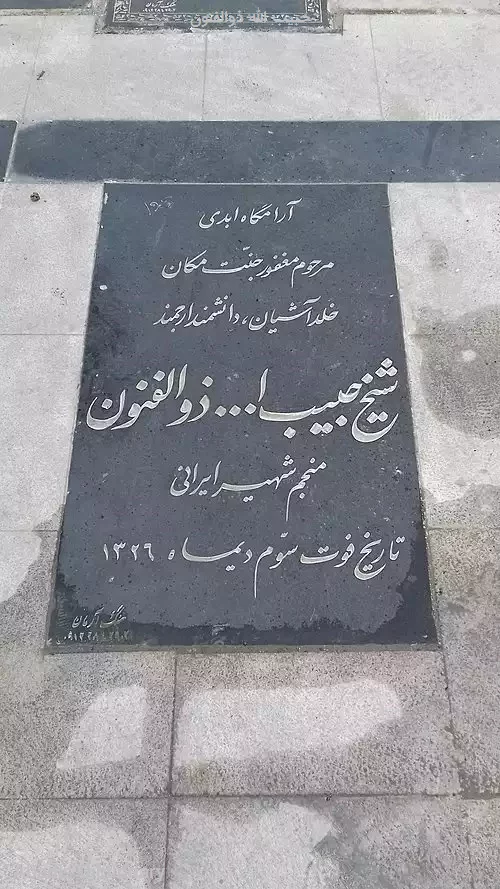 آرامگاه ابدی
مرحوم مغفور جنّت مکان
خلدآشیان، دانشمند ارجمند
شیخ حبیب ا... ذوالفنون
منجم شهیر ایرانی
تاریخ فوت سوّم دیماه ۱۳۲۶
سنگ آرمان